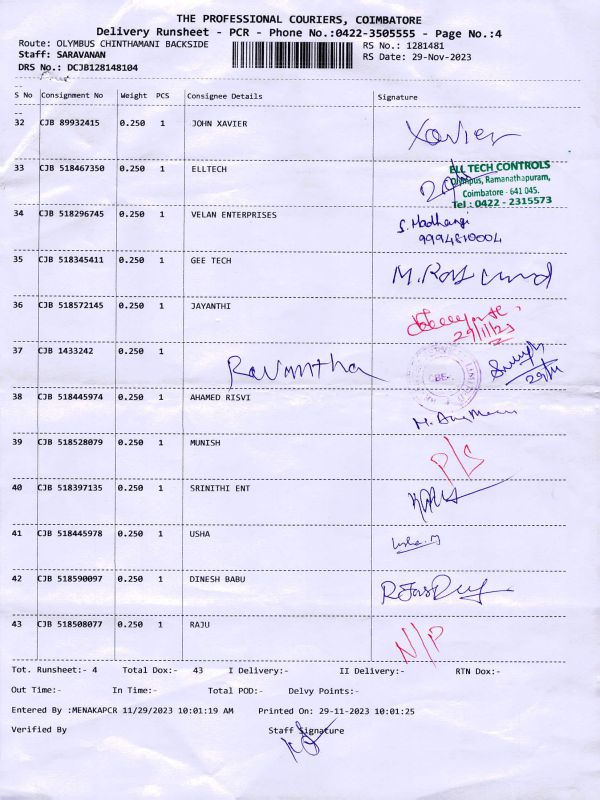 THE PROFESSIONAL COURIERS, COIMBATORE
Delivery Runsheet - PCR - Phone No.:0422-3505555 - Page No.:4
Route: OLYMBUS CHINTHAMANI BACKSIDE RS No.: 1281481
Staff: SARAVANAN RS Date: 29-Nov-2023
DRS No.: DCJB128148104
S No Consignment No Weight PCS Consignee Details Signature
32 CJB 89932415 0.250 1 JOHN XAVIER Xavier
33 CJB 518467350 0.250 1 ELLTECH
ELL TECH CONTROLS
Olympus, Ramanathapuram,
Coimbatore - 641 045.
Tel : 0422 - 2315573
34 CJB 518296745 0.250 1 VELAN ENTERPRISES S. Madhangi
9994810004
35 CJB 518345411 0.250 1 GEE TECH
36 CJB 518572145 0.250 1 JAYANTHI
29/11/23
37 CJB 1433242 0.250 1
CBE
29/11
38 CJB 518445974 0.250 1 AHAMED RISVI
39 CJB 518528079 0.250 1 MUNISH P/S
40 CJB 518397135 0.250 1 SRINITHI ENT
41 CJB 518445978 0.250 1 USHA Usha. M
42 CJB 518590097 0.250 1 DINESH BABU
43 CJB 518508077 0.250 1 RAJU N/P
Tot. Runsheet:- 4 Total Dox:- 43 I Delivery:- II Delivery:- RTN Dox:-
Out Time:- In Time:- Total POD:- Delvy Points:-
Entered By :MENAKAPCR 11/29/2023 10:01:19 AM Printed On: 29-11-2023 10:01:25
Verified By Staff Signature